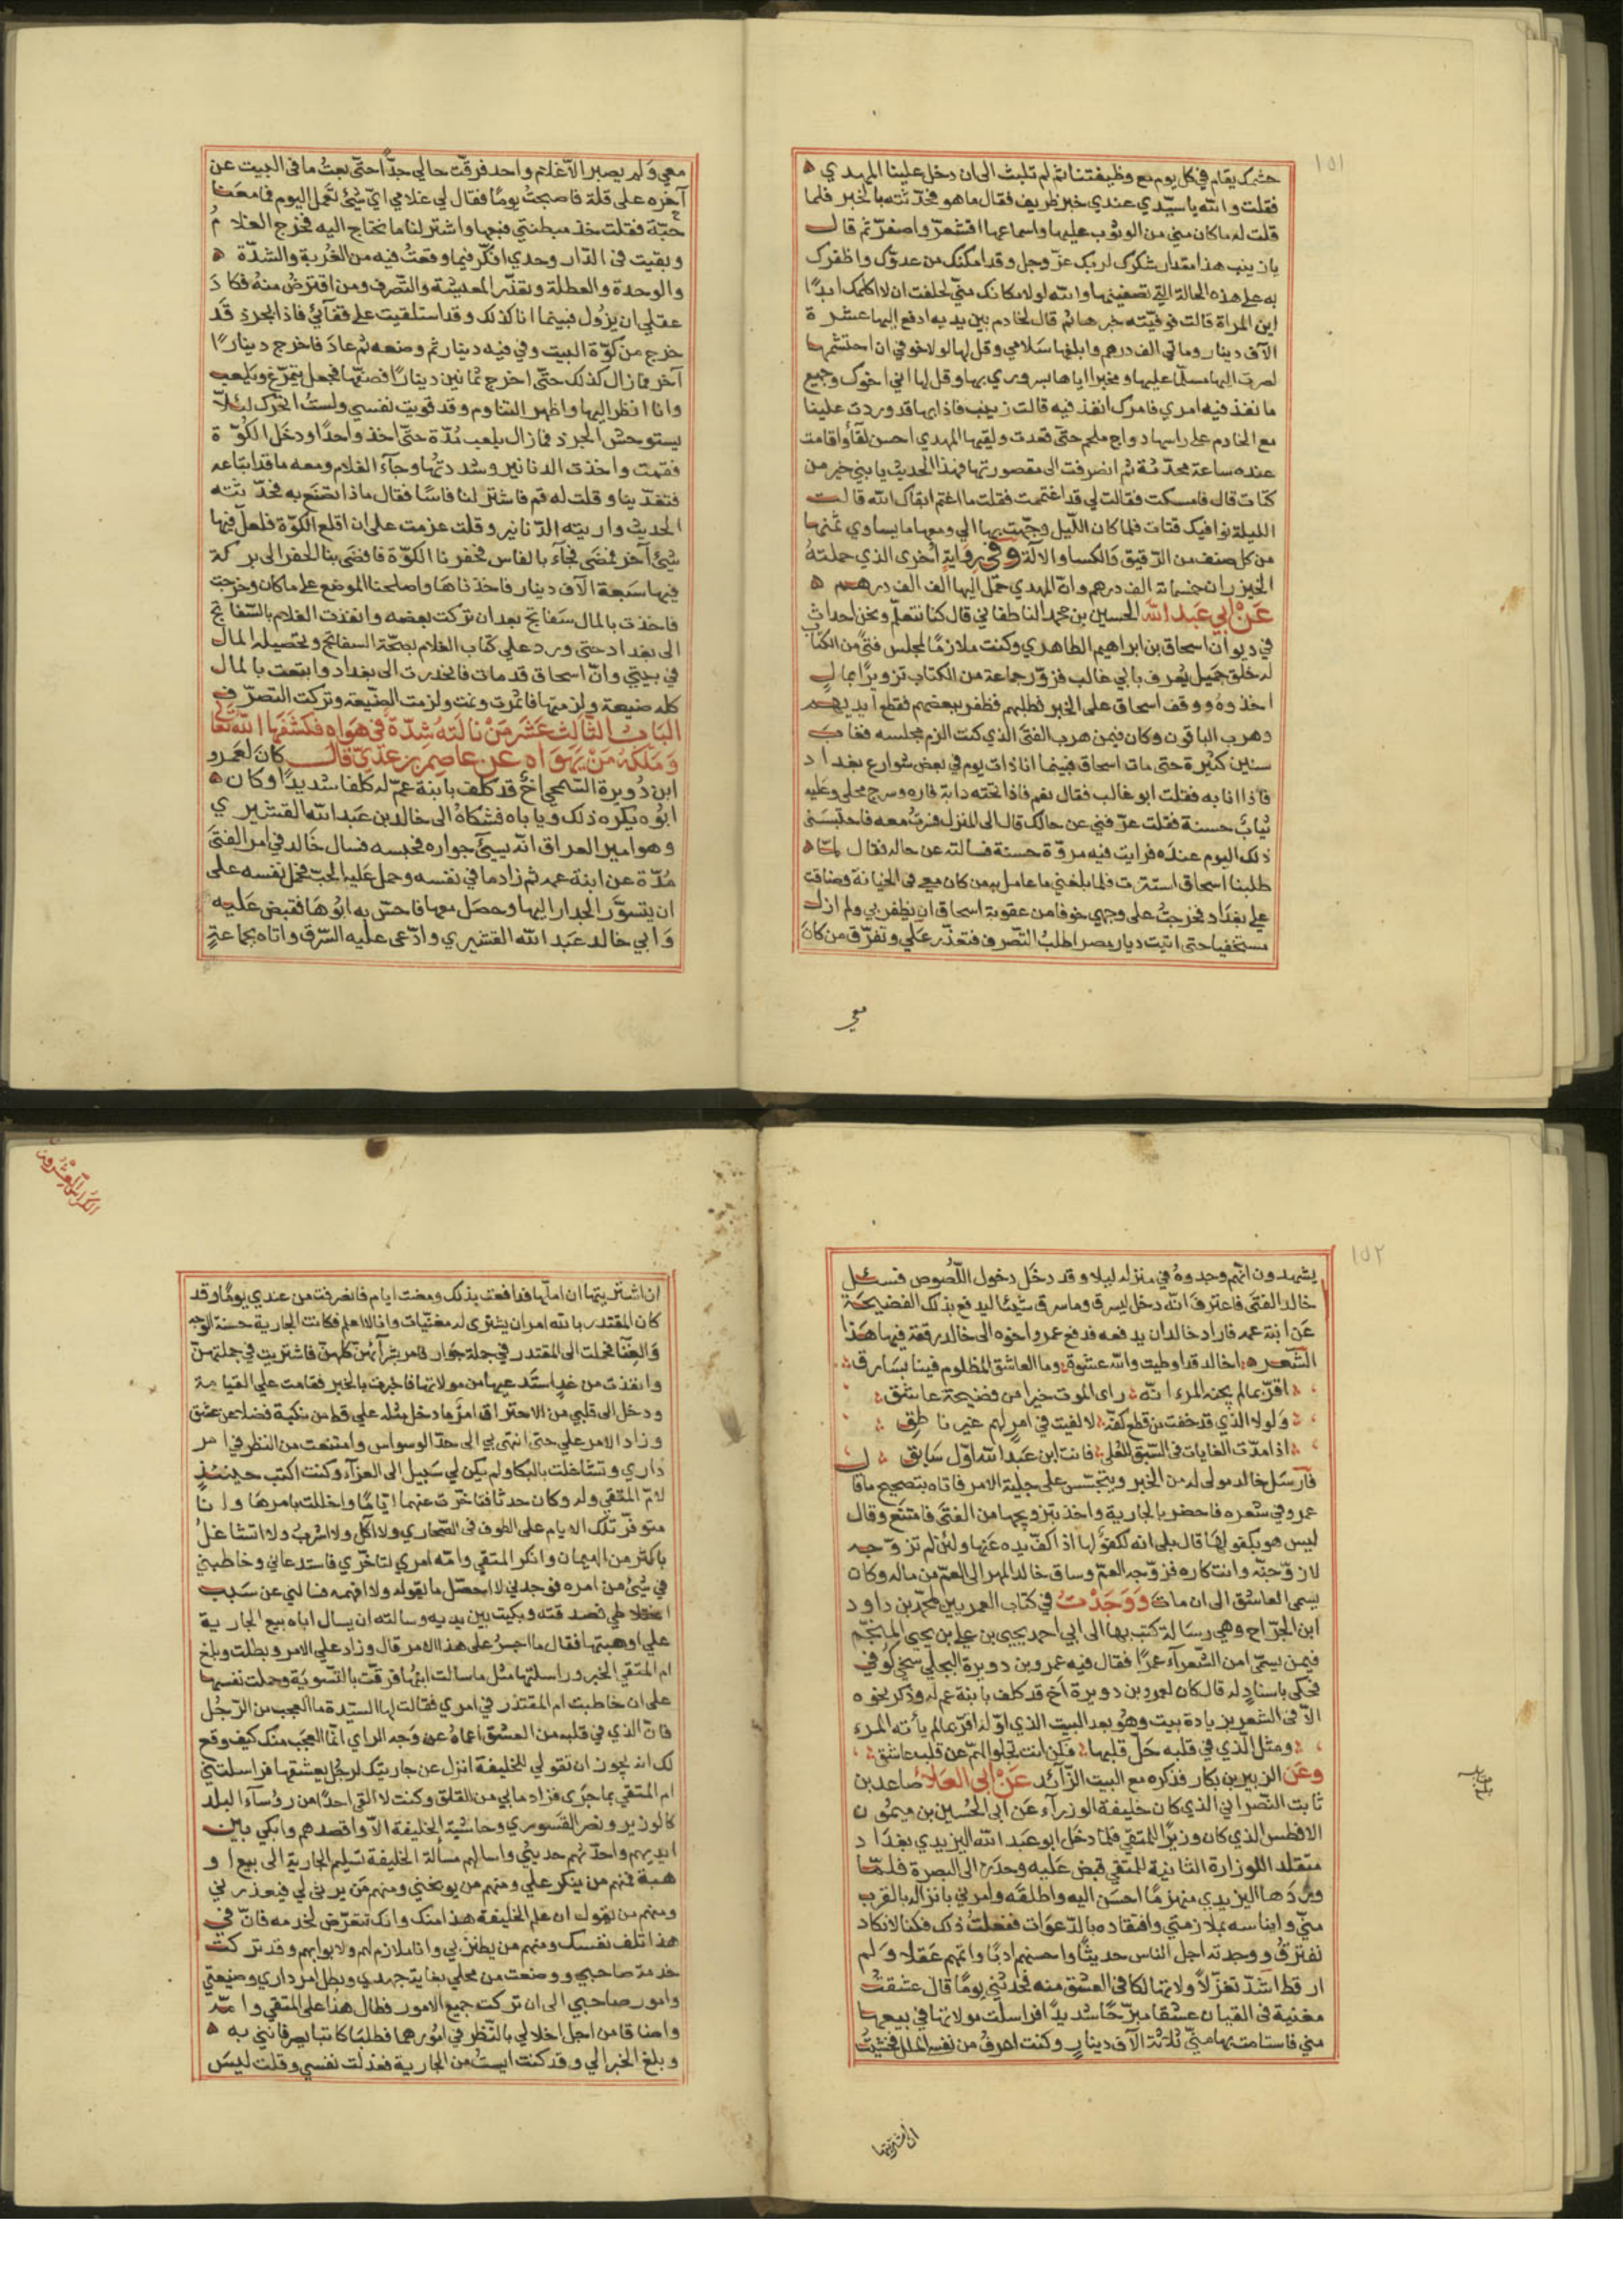 ١٥١
حشمك يقام في كل يوم مع وظيفتنا ثم لم تلبث الى ان دخل علينا المهدي
فقلت والله يا سيّدي عندي خبر ظريف فقال ما هو فحدّثته بالخبر فلما
قلت له ما كان مني من الوثوب عليها واسماعها اقشعرّ واصفرّ ثم قال
يا زينب هذا مقدار شكرك لربك عزّ وجل وقد امكنك من عدوّك واظفرك
به على هذه الحالة التي تصفينها والله لولا مكانك منّي لحلفت ان لا اكلمك ابدًا
اين المراة قالت فوفيّته خبرها ثم قال لخادم بين يديه ادفع اليها عشرة
الآف دينار ومائتي الف درهم وابلغها سَلامي وقل لها لولا خوفي ان احتشمها
لصرت اليها مسلّما عليها ومخبرا اياها بسروري بها وقل لها اني اخوك وجميع
ما نفذ فيه امري فامرك انفذ فيه قالت زينب فاذا بها قد وردت علينا
مع الخادم على راسها دواج ملحم حتّى قعدت ولقيها المهدي احسن لقآء واقامت
عنده ساعة محدّثة ثم انصرفت الى مقصورتها فهذا الحديث يا بني خير من
كتات قال فامسكت فقالت لي قد اغتممت فقلت ما اغتم ابقاك الله قالت
الليلة توافيك قتات فلما كان اللّيل وجّهت بها الي ومعها ما يساوي ثمنها
من كل صنف من الرّقيق والكسا والالة وفي رواية اخرى الذي حملته
الخيزران خمسمائة الف درهم وانّ المهدي حمّل اليها الف الف درهم
عَنْ ابي عَبد الله الحسين بن محمد الناطفاني قال كنا نتعلّم ونحن احداث
في ديوان اسحاق بن ابراهيم الطاهري وكنت ملازمًا لمجلس فتًى من الكتّاب
له خلق جميل يُعرف بابي غالب فزوّر جماعة من الكتاب تزويرًا بمال
اخذوهُ ووقف اسحاق على الخبر فطلبهم فظفر ببعضهم فقطع ايديهم
وهرب الباقون وكان فيمن هرب الفتى الذي كنت الزم مجلسه فغاب
سنين كثيرة حتى مات اسحاق فبينما انا ذات يوم في بعض شوارع بغداد
فاذا انا به فقلت ابو غالب فقال نعم فاذا تحته دابّة فاره وسرج محلى وعليه
ثياب حسنة فقلت عرّفني عن حالك قال الى المنزل فسرت معه فاحتبسَني
ذلك اليوم عندَه فرايت فيه مروّة حسنة فسالته عن حاله فقال لمّا
طلبنا اسحاق استترت فلما بلغني ما عامل به من كان معي في الخيانة وضاقت
علي بغدَاد فخرجتُ على وجهي خوفا من عقوبة اسحاق ان يظفر بي ولم ازل
مستخفيا حتى اتيت ديار مصر اطلبُ التصرف فتعذّر عَلي وتفرّق من كانَ
معي
معي وَلم يصبر الاّ غلام واحد فرقّت حالي جدّاً احتّى بعتُ ما في البيت عن
آخره على قلة فاصبحتُ يومًا فقال لي غلامي ايّ شيْ نعمل اليوم فما معنا
حبّة فقلت خذ مبطنتي فبعها واشتر لنا ما نحتاج اليه فخرج الغلام
وبقيت في الدّار وحدي افكّر فيما وقعتُ فيه من الغُربة والشدّة
والوحدة والعطلة وتعذّر المعيشة والتّصرف ومن اقترضُ منهُ فكادَ
عقلي ان يزُول فبينما انا كذلك وقد استلقيت على قفآئي فاذا بجرذ قَد
خرج من كوّة البيت وفي فيه دينار ثم وضعه ثم عادَ فاخرج دينارًا
آخر فما زال كذلك حتّى اخرج ثمانين دينارًا فصفّها فجعل يتمرّغ ويَلعب
وانا انظر اليها واظهر التناوم وقد قويت نفسي ولستُ اتحرّك لئلاّ
يستوحش الجرذ فما زال يلعب مُدّة حتّى اخذ واحدًا ودخَل الكوّة
فقمت واخذت الدنانير وشددتها وجآء الغلام ومعه ما قد ابتاعه
فتغدّينا وقلت له قم فاشتر لنا فاسًا فقال ماذا نصنع به فحدّثته
الحديث واريته الدّنانير وقلت عزمت على ان اقلع الكوّة فلعلّ فيها
شيْ آخر فمضى فجآء بالفاس فحفرنا الكوّة فافضى بنا الحفر الى بركة
فيها سَبعة الآف دينار فاخذناهَا واصلحنا الموضع على ما كان وخرجت
فاخذت بالمال سَفاتج بعد ان تركت بعضه وانفذت الغلام بالسّفاتج
الى بغداد حتى ورد علي كتاب الغلام بصحّة السفاتج وتحصيله المال
في بيتي وانّ اسحاق قد مات فانحدرت الى بغداد وابتعت بالمال
كله ضيعة ولزمتها فاثمرت ونمت ولزمت الضّيعة وتركت التصرّف
البَابُ الثّالث عَشَر مَنْ نالتهُ شِدّة في هَواه فكشَفَهَا الله تعَالى
وَمَلَكَهُ مَنْ يَهوَاهُ عن عاصِم بن عَديّ قالَ كانَ لعَمرو
ابن دُويرة السّحمي اخٌ قد كلف بابنة عمّ له كلفا شديدًا وكان
ابُوه يكره ذلك ويأباه فشكاهُ الى خالد بن عَبد الله القشيري
وهو امير العراق انّه يسيئ جواره فحبسه فسال خَالد في امر الفتَى
مُدّة عن ابنة عمه ثم زاد ما في نفسه وحمل عَليه الحبّ فحمل نفسه على
ان يتسوّر الجدار اليها وحصَل معها فاحسّ به ابُوهَا فقبض عَليه
وَابي خالد عَبد الله القشيري وادّعى عليه السّرق واتاه بجماعةٍ
١٥٢
يشهدون انّهم وجدوهُ في منزله ليلا وقد دخَل دخول اللّصُوص فسئل
خالد الفتَى فاعترفَ انّه دخل ليسرق وما سرق شيئًا ليدفع بذلك الفضيحَة
عَن ابنة عمه فاراد خالد ان يدفعه فدفع عمرو اخوه الى خالد رقعة فيها هَذا
الشّعر اخالد قد اوطيت والله عشوة وما العاشق المظلوم فينا بسَارق
اقرّ بما لم يجنه المرء انّه راى الموت خيرا من فضيحة عاشق
وَلولا الذي قد خفت من قطع كفّه لالفيت في امر لهم غير ناطِق
اذا مدّت الغايات في السّبق للعُلى فانت ابن عَبد الله اوّل سَابق
فآرسَل خالد مولى له من الخبر ويتجسّس على جليّة الامر فاتاه بتصحيح ما قال
عمرو في شعره فاحضر بالجارية واخذ بتزويجها من الفتَى فامتنَع وقال
ليس هو بكفو لهَا قال بلى انه لكفوٌ لها اذ اكفّ يده عَنها ولئن لم تزوّجه
لازوّجنّه وانت كاره فزوّجه العمّ وساق خالد المهر الى العمّ من ماله وكان
يسمى العاشق الى ان ماتَ وَوَجَدْتُ في كتاب العمريين لمحمّد بن داود
ابن الجرّاح وهي رسَالة كتب بها الى ابي احمد يحيى بن علي بن يحيى المنجّم
فيمن يسمّى من الشّعرآء عمرًا فقال فيه عمرو بن دويرة البجلي سحيّ كوفي
فحكى باسناد له قال كان لعمرو بن دويرة اخ قد كلف بابنة عم له وذكر نحوه
الاّ في الشعر بزيادة بيت وهُو بعد البيت الذي اوّله اقرّ بما لم يأته المرء
ومثل الّذي في قلبه حَلّ قلبها فكن انت تجلو الهمّ عن قلب عاشق
وعَن الزبير بن بكار فذكره مع البيت الزّآئد عَنْ ابي العَلاء صَاعد بن
ثابت النّصراني الذي كان خليفة الوزرآء عَن ابي الحُسين بن ميمُون
الافطس الذي كان وزيرًا للمتقي فلمّا دخَل ابو عَبد الله اليزيدي بغدَاد
متقلد اللوزارة الثانية للمتقي قبض عَليه وحدره الى البصرة فلمّا
وردَها اليزيدي منهزمًا احسَن اليه واطلقه وامرني بانزاله بالقرب
منّي وايناسه بملازمتي وافتقاده بالدّعوَات ففعلتُ ذلك فكنا لا نكاد
نفترقُ ووجدته اجل الناس حديثًا واحسنهم ادبًا واتمهم عَقلا وَلم
ار قط اشدّ تغزّلاً ولا تهالكا في العشق منه فحدثني يومًا قال عشقتُ
مغنية في القيان عشقا مبرّحًا شديدًا فراسلت مولاتها في بيعها
مني فاستامتها منّي ثلثة الآف دينار وكنت اعرفُ من نفسي الملل فخشيتُ
ان اشتريتها
الكراس العشرون
ان اشتريتها ان املّها فدافعت بذلك ومضت ايام فانصرفت من عندي يومًا وقد
كان المقتدر بالله امر ان يشترى له مغنّيات وانا لا اعلم فكانت الجارية حسنة الوجه
وَالغِنَا فحملت الى المقتدر في جملة جوار فامر بشرآئهنّ كلهنّ فاشتريت في جملتهنّ
وانفذت من غدٍ استَدعيها من مولاتها فاخبرت بالخبر فقامت علي القيامة
ودخل الى قلبي من الاحتراق امرٌ ما دخل مثله علي قط من نكبة فضلا عن عشق
وزاد الامر علي حتى انتهى بي الى حدّ الوسواس وامتنعت من النظر في امر
داري وتشاغلت بالبكا ولم يكن لي سَبيل الى العزآء وكنت اكتب حينئذٍ
لامّ المتقي وله وكان حدثا فتاخّرت عنهما ايّامًا واخللت بامرهَا وانا
متوفّر تلك الايام على الطوف في الصّحاري ولا آكل ولا اشربُ ولا اتشاغلُ
باكثر من الهيمان وانكر المتقي وامّه امري لتاخّري فاستدعاني وخاطبني
في شيْ من امره فوجدني لا احصّل ما يقوله ولا افهمه فسالني عن سَبب
اختلاطي فصدقته وبكيت بين يديه وسالته ان يسال اباه بيع الجارية
علي او هبتها فقال ما اجسرُ على هذا الامر قال وزاد علي الامر وبطلت وبلغ
ام المتقي الخبر وراسلتها مثل ما سالت ابنها فرقّت بالتّسوية وحملت نفسها
على ان خاطبت ام المقتدر في امري فقالت لها السيّدة ما العجب من الرّجُل
فانّ الذي في قلبه من العشق اعماهُ عن وَجه الراي انّما العجَب منك كيف وقع
لك انه يجوز ان تقولي للخليفة انزل عن جاريتك لرجُل يعشقها فراسلتني
ام المتقي بما جَرى فزاد ما بي من القلق وكنت لا القى احدًا من رؤسآء البلد
كالوزير ونصر القَسوري وحاشية الخليفة الاّ واقصدهم وابكي بين
ايديهم واحدّثهم حديثي واسالهم مسالة الخليفة تسليم الجارية الي بيع او
هبة فمنهم من ينكر علي ومنهم من يوبخني ومنهم مَن يرثي لي فيعذرني
ومنهم من يقول ان علم الخليفة هذا منك وانك تتعرّض لخدمه فانّ في
هذا تلف نفسك ومنهم من يطنز بي وانا ملازم لهم ولابوابهم وقد تركت
خدمة صاحبي ووضعت من محلي بغاية جهدي وبطل امر داري وضيعتي
وامور صاحبي الى ان تركت جميع الامور فطال هذا على المتقي وامّه
واضاقا من اجل اخلالي بالنّظر في امورهما فطلبا كاتبا يصرفانني به
وبلغ الخبر الي وقد كنت ايستُ من الجارية فعذلت نفسي وقلت ليسَ